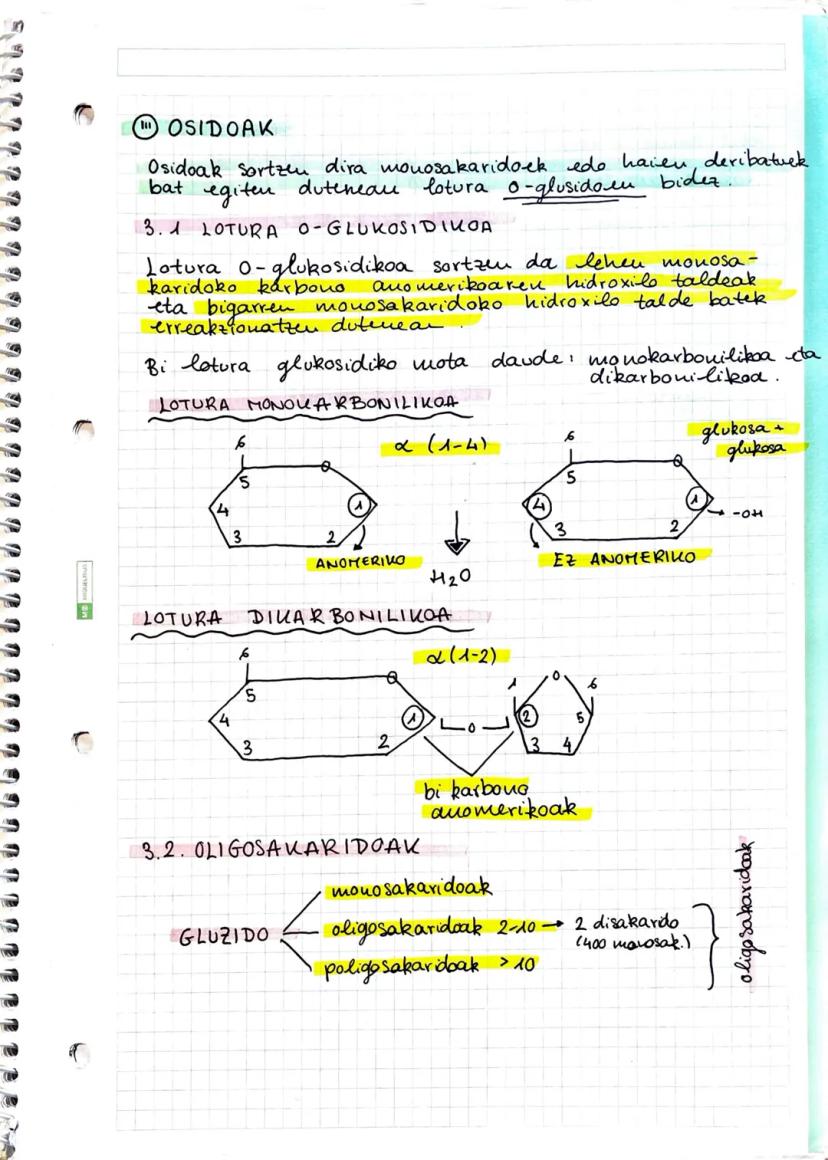 III OSIDOAK
Osidoak sortzen dira monosakaridoek edo haien deribatuek
bat egiten dutenean lotura o-glusidoen bidez.
3.1 LOTURA O-GLUKOSIDIKOA
Lotura o-glukosidikoa sortzen da lehen monosa-
karidoko karbono anomerikoaren hidroxilo taldeak
eta bigarren monosakaridoko hidroxilo talde batek
erreakzionatzen dutenean.
Bi lotura glukosidiko mota daude: monokarbonilikoa eta
dikarbonilikoa.
LOTURA MONOKARBONILIKOA
glukosa +
glukosa
α (1-4)
6 5 O 4 1 3 2
6 5 O 4 1 3 2 -OH
ANOMERIKO
EZ ANOMERIKO
H2O
LOTURA DIKARBONILIKOA
α(1-2)
6 5 O 4 1 3 2
O
1 O 6 2 5 3 4
bi karbono
anomerikoak
3.2. OLIGOSAKARIDOAK
monosakaridoak
GLUZIDO
oligosakaridoak 2-10 → 2 disakarido
(400 monosak.)
poligosakaridoak > 10
oligosakaridoak